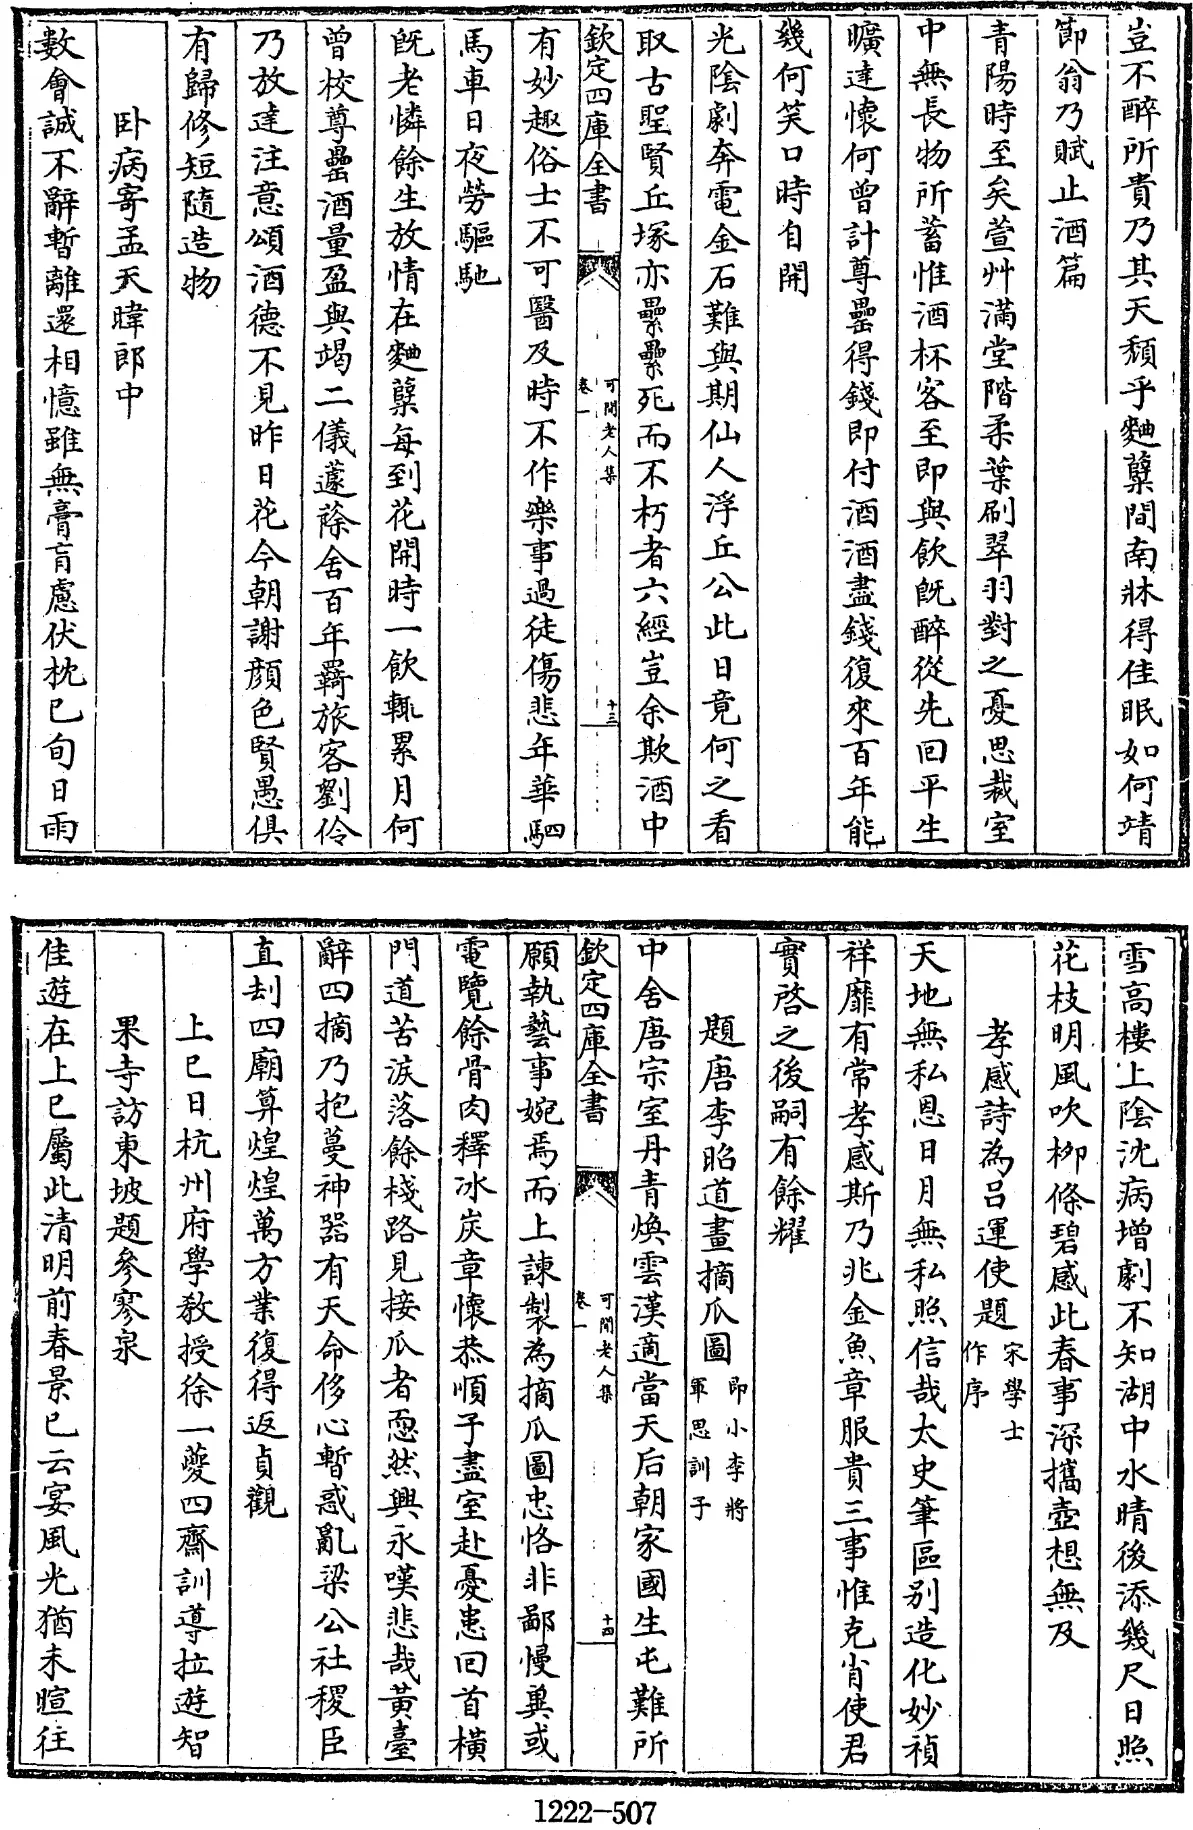 豈不醉所貴乃其天頹乎麯糵間南牀得佳眠如何靖
節翁乃賦止酒篇
青陽時至矣萱艸滿堂階柔葉刷翠羽對之憂思裁室
中無長物所蓄惟酒杯客至即與飲既醉從先回平生
曠達懷何曾計尊罍得錢即付酒酒盡錢復來百年能
幾何笑口時自開
光陰劇奔電金石難與期仙人浮丘公此日竟何之看
取古聖賢丘塚亦纍纍死而不朽者六經豈余欺酒中
欽定四庫全書
可閒老人集
卷一
十三
有妙趣俗士不可醫及時不作樂事過徒傷悲年華駟
馬車日夜勞驅馳
既老憐餘生放情在麯糵每到花開時一飲輒累月何
曾校尊罍酒量盈與竭二儀蘧蒢舍百年羇旅客劉伶
乃放達注意頌酒德不見昨日花今朝謝顔色賢愚俱
有歸修短隨造物
卧病寄孟天暐郎中
數會誠不辭暫離還相憶雖無膏肓慮伏枕已旬日雨
雪高樓上陰沈病增劇不知湖中水晴後添幾尺日照
花枝明風吹栁條碧感此春事深攜壺想無及
孝感詩為呂運使題宋學士作序
天地無私恩日月無私照信哉太史筆區别造化妙禎
祥靡有常孝感斯乃兆金魚章服貴三事惟克肖使君
實啓之後嗣有餘耀
題唐李昭道畫摘瓜圖即小李將軍思訓子
中舍唐宗室丹青煥雲漢適當天后朝家國生屯難所
欽定四庫全書
可閒老人集
卷一
十四
願執藝事婉焉而上諫製為摘瓜圖忠恪非鄙慢冀或
電覽餘骨肉釋冰炭章懷恭順子盡室赴憂患回首橫
門道苦淚落餘棧路見接瓜者愿然興永嘆悲哉黃臺
辭四摘乃抱蔓神器有天命侈心暫惑亂梁公社稷臣
直刦四廟算煌煌萬方業復得返貞觀
上巳日杭州府學教授徐一夔四齋訓導拉遊智
果寺訪東坡題參寥泉
佳遊在上巳屬此清明前春景已云宴風光猶未暄往
1222-507